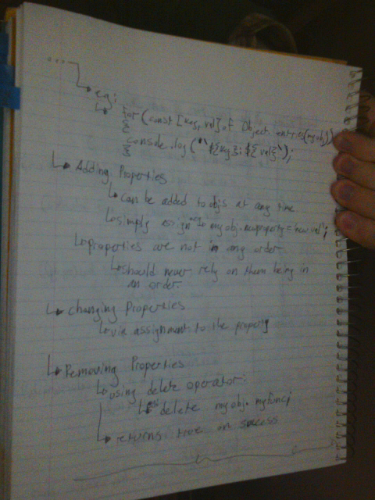 e.g:
for (const [key, val] of Object.entries(myobj))
{
console.log(`${key}: ${val}`);
}
Adding Properties
can be added to objs at any time
simply as myobj.newproperty = newval;
properties are not in any order.
should never rely on them being in
an order.
Changing Properties
via assignment to the property
Removing Properties
using delete operator.
delete myobj.myfunc;
returns true on success